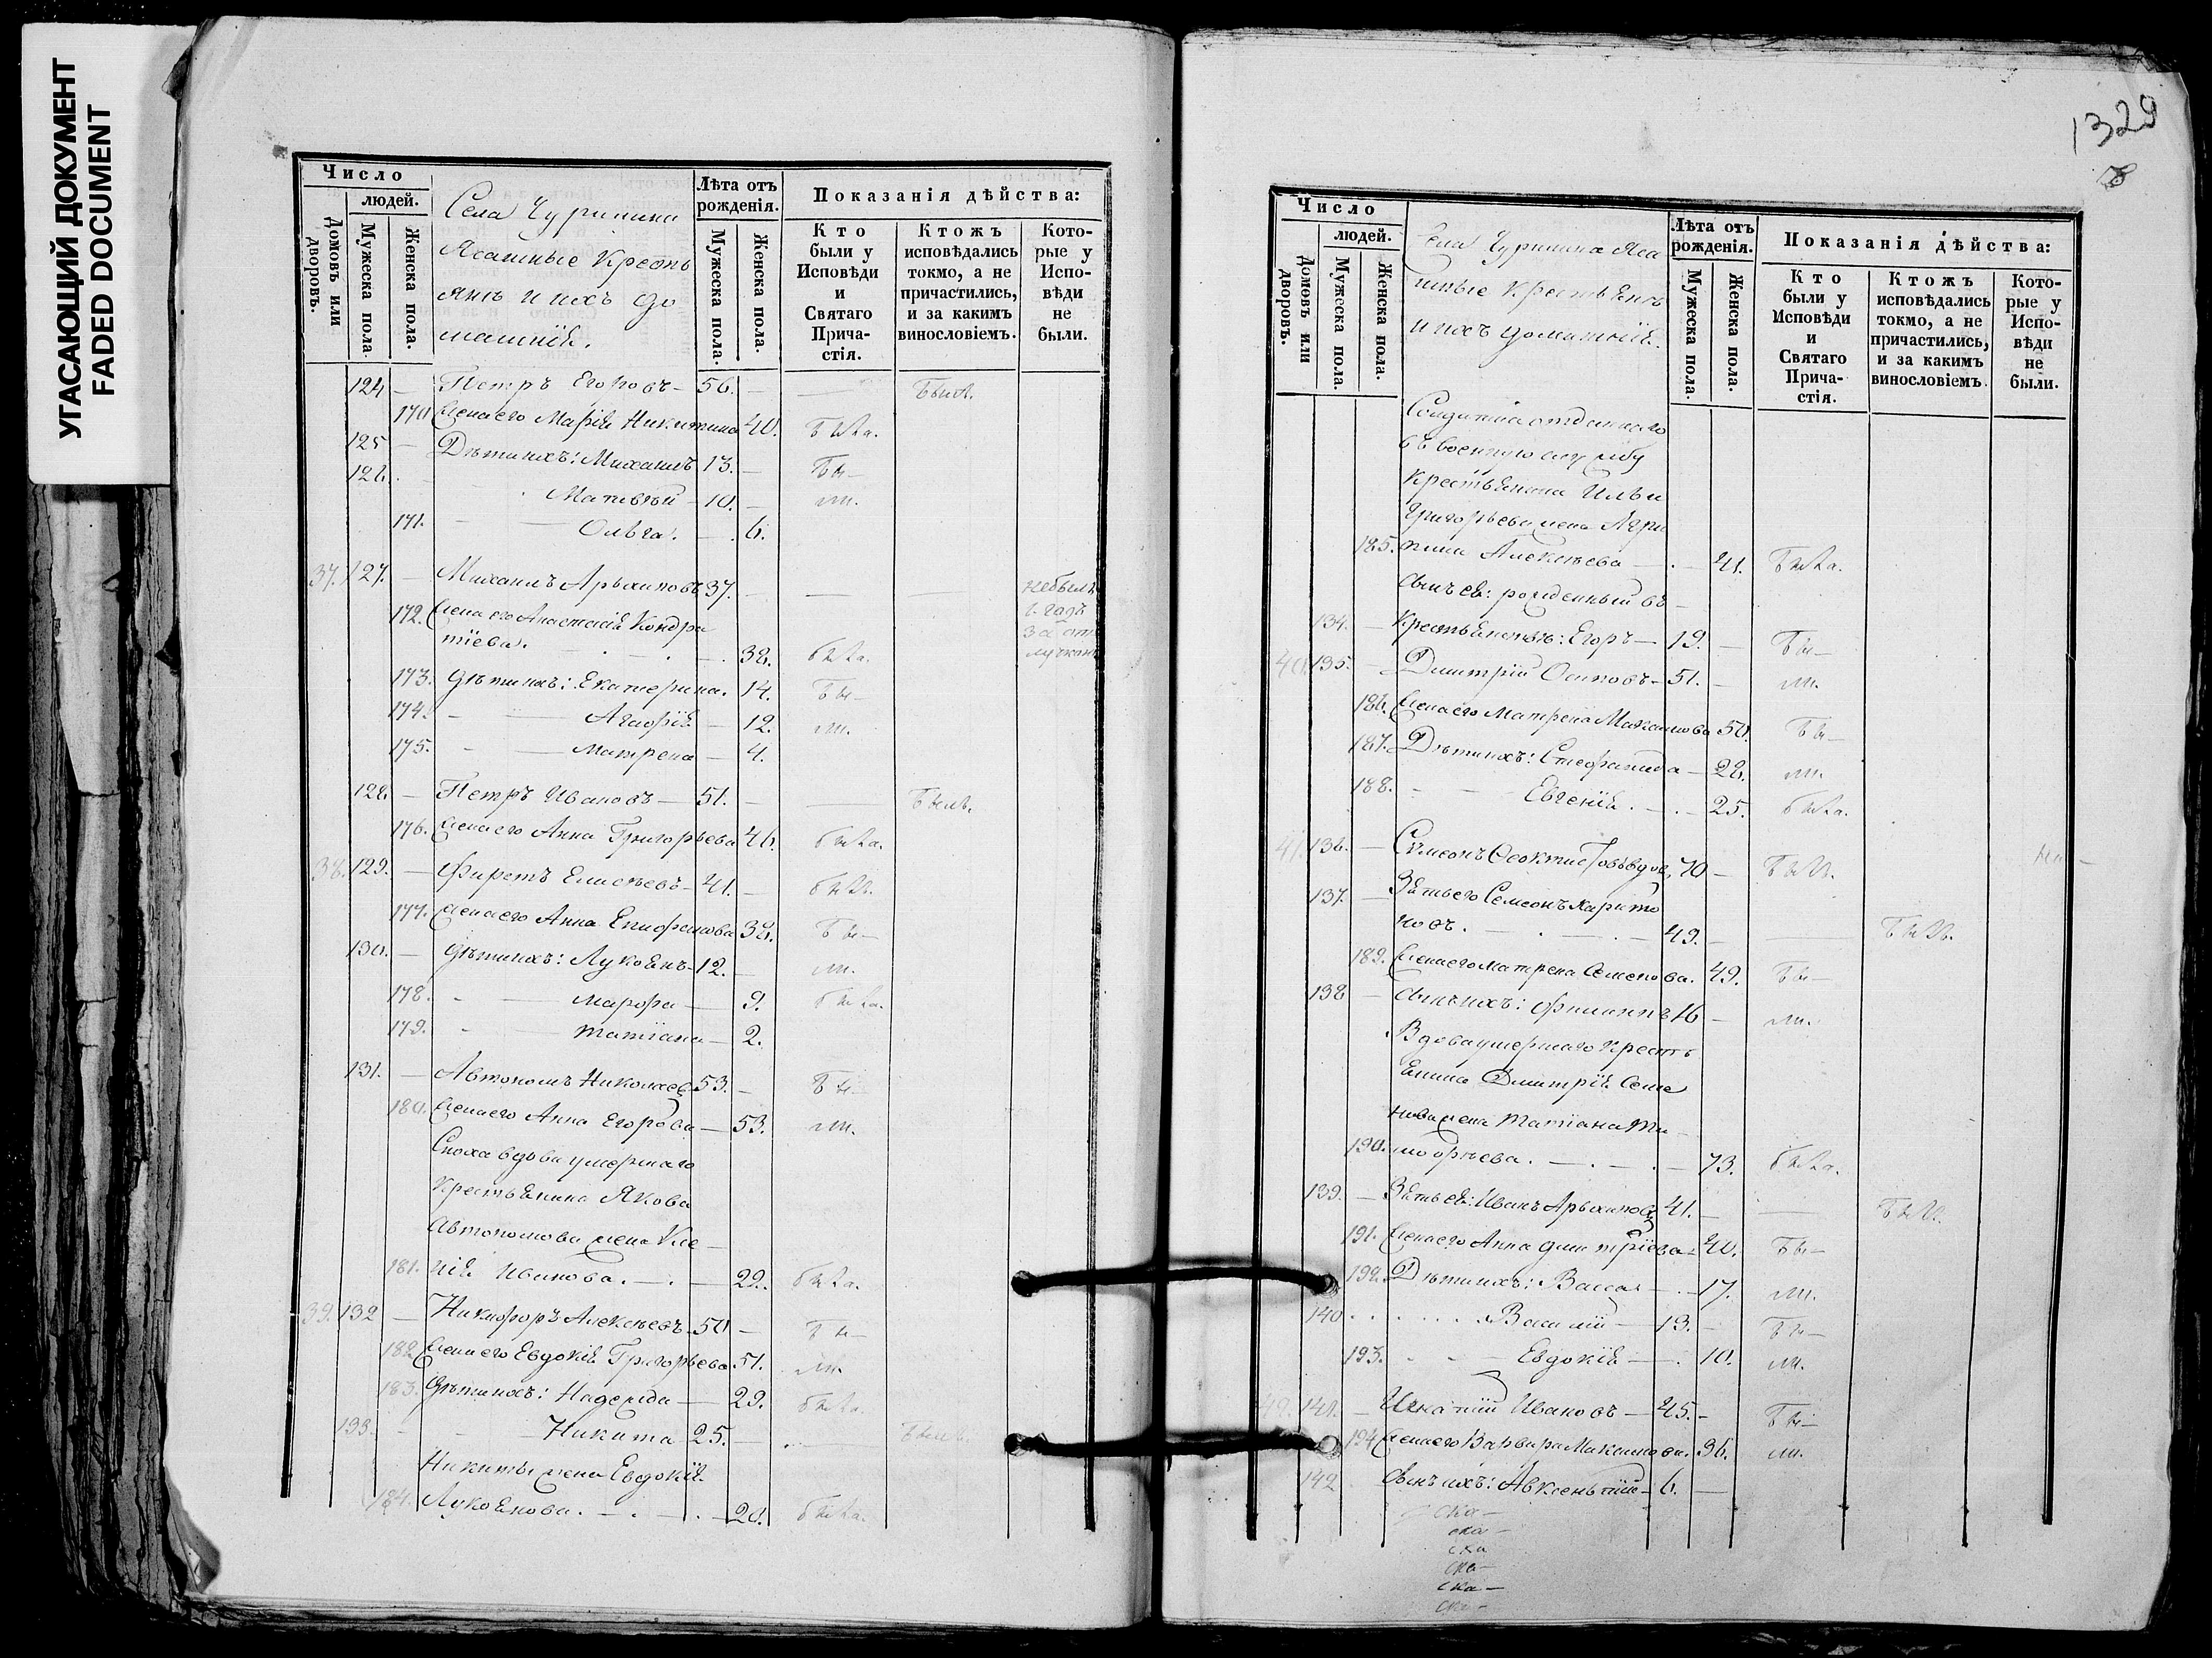 УГАСАЮЩИЙ ДОКУМЕНТ
FADED DOCUMENT
Число
людей.
Домовъ или дворовъ.
Мужеска пола.
Женска пола.
Села Чурилина
Ясашные Крестъ
янъ и ихъ до
машнія.
Лѣта отъ рожденія.
Мужеска пола.
Женска пола.
Показанія дѣйства:
Кто были у Исповѣди и Святаго Причастія.
Ктожъ исповѣдались токмо, а не причастились, и за какимъ винословіемъ.
Которые у Исповѣди не были.
124 — Петръ Егоровъ — 56. — — Былъ.
170 Жена его Марія Никитина 40. была.
125 — Дѣти ихъ: Михаилъ 13. — Бы—
126. Матвѣй — 10. — ли.
171. — Ольга. — 6.
37. 127. — Михаилъ Архиповъ 37. — — — небылъ
1. годъ
за от
лучкою
172. Жена его Анастасія Кондра
тіева. — 38. была.
173. Дѣти ихъ: Екатерина. 14. Бы—
174. — — 12. ли.
175. — Матрена — 4.
128. — Петръ Ивановъ — 51. — — Былъ.
176. Жена его Анна Григорьева 46. была.
38. 129. — Фирстъ Елисѣевъ — 41. — былъ.
177. Жена его Анна Епифанова 38. Бы—
130. — Дѣти ихъ: Лукоянъ — 12. — ли.
178. — Марфа — 9. была.
179. — Татіана — 2.
131. — Автономъ Николаев 53. — Бы—
180. Жена его Анна Егорова — 53. ли.
Сноха вдова умершаго
Крестьянина Якова
Автономова жена Ксе—
181. нія Иванова. — 22. была.
39. 132 — Никифоръ Алексѣевъ. 50 — Бы—
182 Жена его Евдокія Григорьева 51. ли.
183. Дѣти ихъ: Надежда — 29. была.
133. — Никита 25. — — Былъ.
Никиты жена Евдокія
184. Лукоянова. — 20. была.
1329
Число
людей.
Домовъ или дворовъ.
Мужеска пола.
Женска пола.
Села Чурилина Яса
шные Крестьянъ
и ихъ домашнія.
Лѣта отъ рожденія.
Мужеска пола.
Женска пола.
Показанія дѣйства:
Кто были у Исповѣди и Святаго Причастія.
Ктожъ исповѣдались токмо, а не причастились, и за какимъ винословіемъ.
Которые у Исповѣди не были.
Солдатка отданнаго
въ военную службу
Крестьянина Ильи
Григорьева жена Агри
185. пина Алексѣева — 41. Была.
сынъ ея: рожденный въ —
134. — Крестьянствѣ: Егоръ — 19. — Бы—
40. 135. — Димитрій Осиповъ — 51. — ли.
186. Жена его Матрена Максимова 50. Бы—
187. Дѣти ихъ: Стефанида — 28. ли.
188. — Евгенія. — 25. была.
41. 136. — Сѵмеонъ Ѳеоктистовъ вдов. 70 — Былъ.
137. — Зять его Семеонъ Харито
новъ. — 49. — — Былъ.
189. Жена его Матрена Семенова. 49. Бы—
138 — Сынъ ихъ: Филиппъ 16 — ли.
Вдова умершаго Кресть
янина Димитрія Семе
нова жена Татіана Ти—
190. моѳѣева. — 73. была.
139. — Зять ея: Иванъ Архиповъ 41. — — Былъ.
191. Жена его Анна Димитріева — 40. Бы—
192. Дѣти ихъ: Васса — 17. ли.
140 Василій — 13. — Бы—
193. — Евдокія — 10. ли.
42. 141. — Игнатій Ивановъ — 45. — Бы—
194 Жена его Варвара Максимова. 36. ли.
142 Сынъ ихъ: Авксентій — 6. —
ска —
ска —
ска
ска —
ска —
ска —